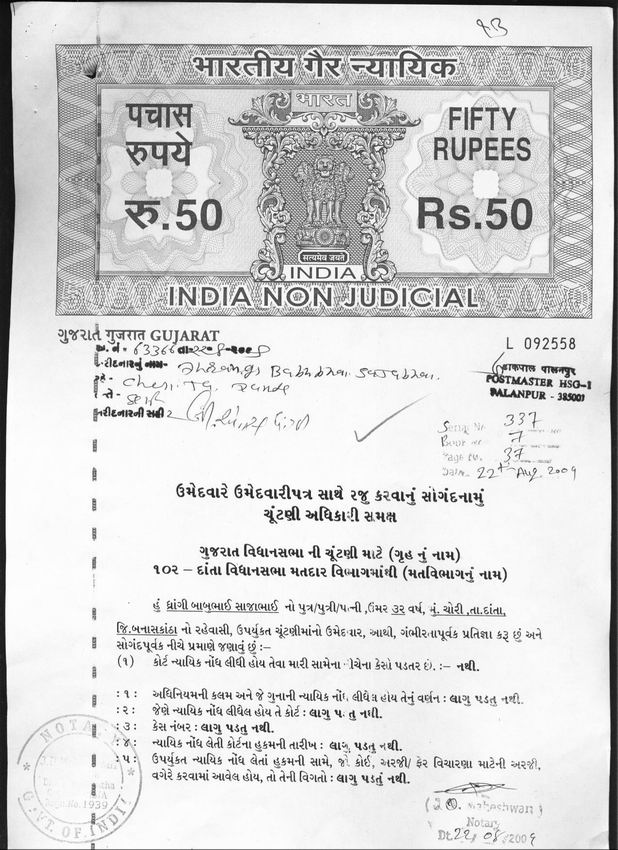 भारतीय गैर न्यायिक
भारत
पचास
रुपये
रु.50
FIFTY
RUPEES
Rs.50
सत्यमेव जयते
INDIA
INDIA NON JUDICIAL
ગુજરાત गुजरात GUJARAT
L 092558
डाकपाल पालनपुर
POSTMASTER HSG-I
PALANPUR - 385001
Serial No 337
Book No 7
Page No. 37
Date 22 Aug. 2009
ઉમેદવારે ઉમેદવારીપત્ર સાથે રજુ કરવાનું સોગંદનામું
ચૂંટણી અધિકારી સમક્ષ
ગુજરાત વિધાનસભા ની ચૂંટણી માટે (ગૃહ નું નામ)
૧૦૨ – દાંતા વિધાનસભા મતદાર વિભાગમાંથી (મતવિભાગનું નામ)
હું ધ્રાંગી બાબુભાઈ સાજાભાઈ નો પુત્ર/પુત્રી/પત્ની ,ઉંમર ૩૨ વર્ષ, મું. ચોરી ,તા.દાંતા,
જિ.બનાસકાંઠા નો રહેવાસી, ઉપર્યુકત ચૂંટણીમાંનો ઉમેદવાર, આથી, ગંભીરતાપૂર્વક પ્રતિજ્ઞા કરૂ છું અને
સોગંદપૂર્વક નીચે પ્રમાણે જણાવું છું :–
(૧) કોર્ટ ન્યાયિક નોંધ લીધી હોય તેવા મારી સામેના નીચેના કેસો પડતર છે. :– નથી.
: ૧ : અધિનિયમની કલમ અને જે ગુનાની ન્યાયિક નોંધ લીધેલ હોય તેનું વર્ણન : લાગુ પડતુ નથી.
: ૨ : જેણે ન્યાયિક નોંધ લીધેલ હોય તે કોર્ટ : લાગુ પડતુ નથી.
: ૩ : કેસ નંબર : લાગુ પડતુ નથી.
: ૪ : ન્યાયિક નોંધ લેતી કોર્ટના હુકમની તારીખ : લાગુ પડતુ નથી.
: ૫ : ઉપર્યુકત ન્યાયિક નોંધ લેતાં હુકમની સામે, જો કોઈ, અરજી/ ફેર વિચારણા માટેની અરજી,
વગેરે કરવામાં આવેલ હોય, તો તેની વિગતો : લાગુ પડતુ નથી.
NOTARY
Regn.No.1939
GOVT. OF INDIA
Maheshwari
Notary
Dt. 22/08/2009